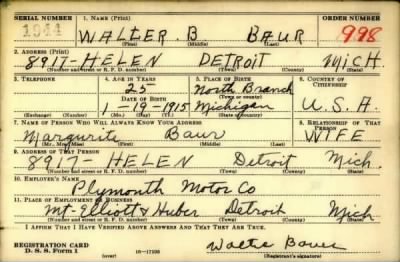 SERIAL NUMBER 1. NAME (Print) ORDER NUMBER
1044 WALTER B BAUR 998
(First) (Middle) (Last)
2. ADDRESS (Print)
8917- HELEN DETROIT MICH.
(Number and street or R. F. D. number) (Town) (County) (State)
3. TELEPHONE 4. AGE IN YEARS 5. PLACE OF BIRTH 6. COUNTRY OF CITIZENSHIP
25 North Branch
(Town or county)
DATE OF BIRTH
1-19-1915 Michigan U.S.A.
(Exchange) (Number) (Mo.) (Day) (Yr.) (State or country)
7. NAME OF PERSON WHO WILL ALWAYS KNOW YOUR ADDRESS 8. RELATIONSHIP OF THAT PERSON
Margurite Baur WIFE
(Mr., Mrs., Miss) (First) (Middle) (Last)
9. ADDRESS OF THAT PERSON
8917- HELEN Detroit Mich.
(Number and street or R. F. D. number) (Town) (County) (State)
10. EMPLOYER'S NAME
Plymouth Motor Co
11. PLACE OF EMPLOYMENT OR BUSINESS
Mt. Elliott & Huber Detroit Mich
(Number and street or R. F. D. number) (Town) (County) (State)
I AFFIRM THAT I HAVE VERIFIED ABOVE ANSWERS AND THAT THEY ARE TRUE.
REGISTRATION CARD
D. S. S. Form 1 (over) 16-17105 Walter Baur
(Registrant's signature)